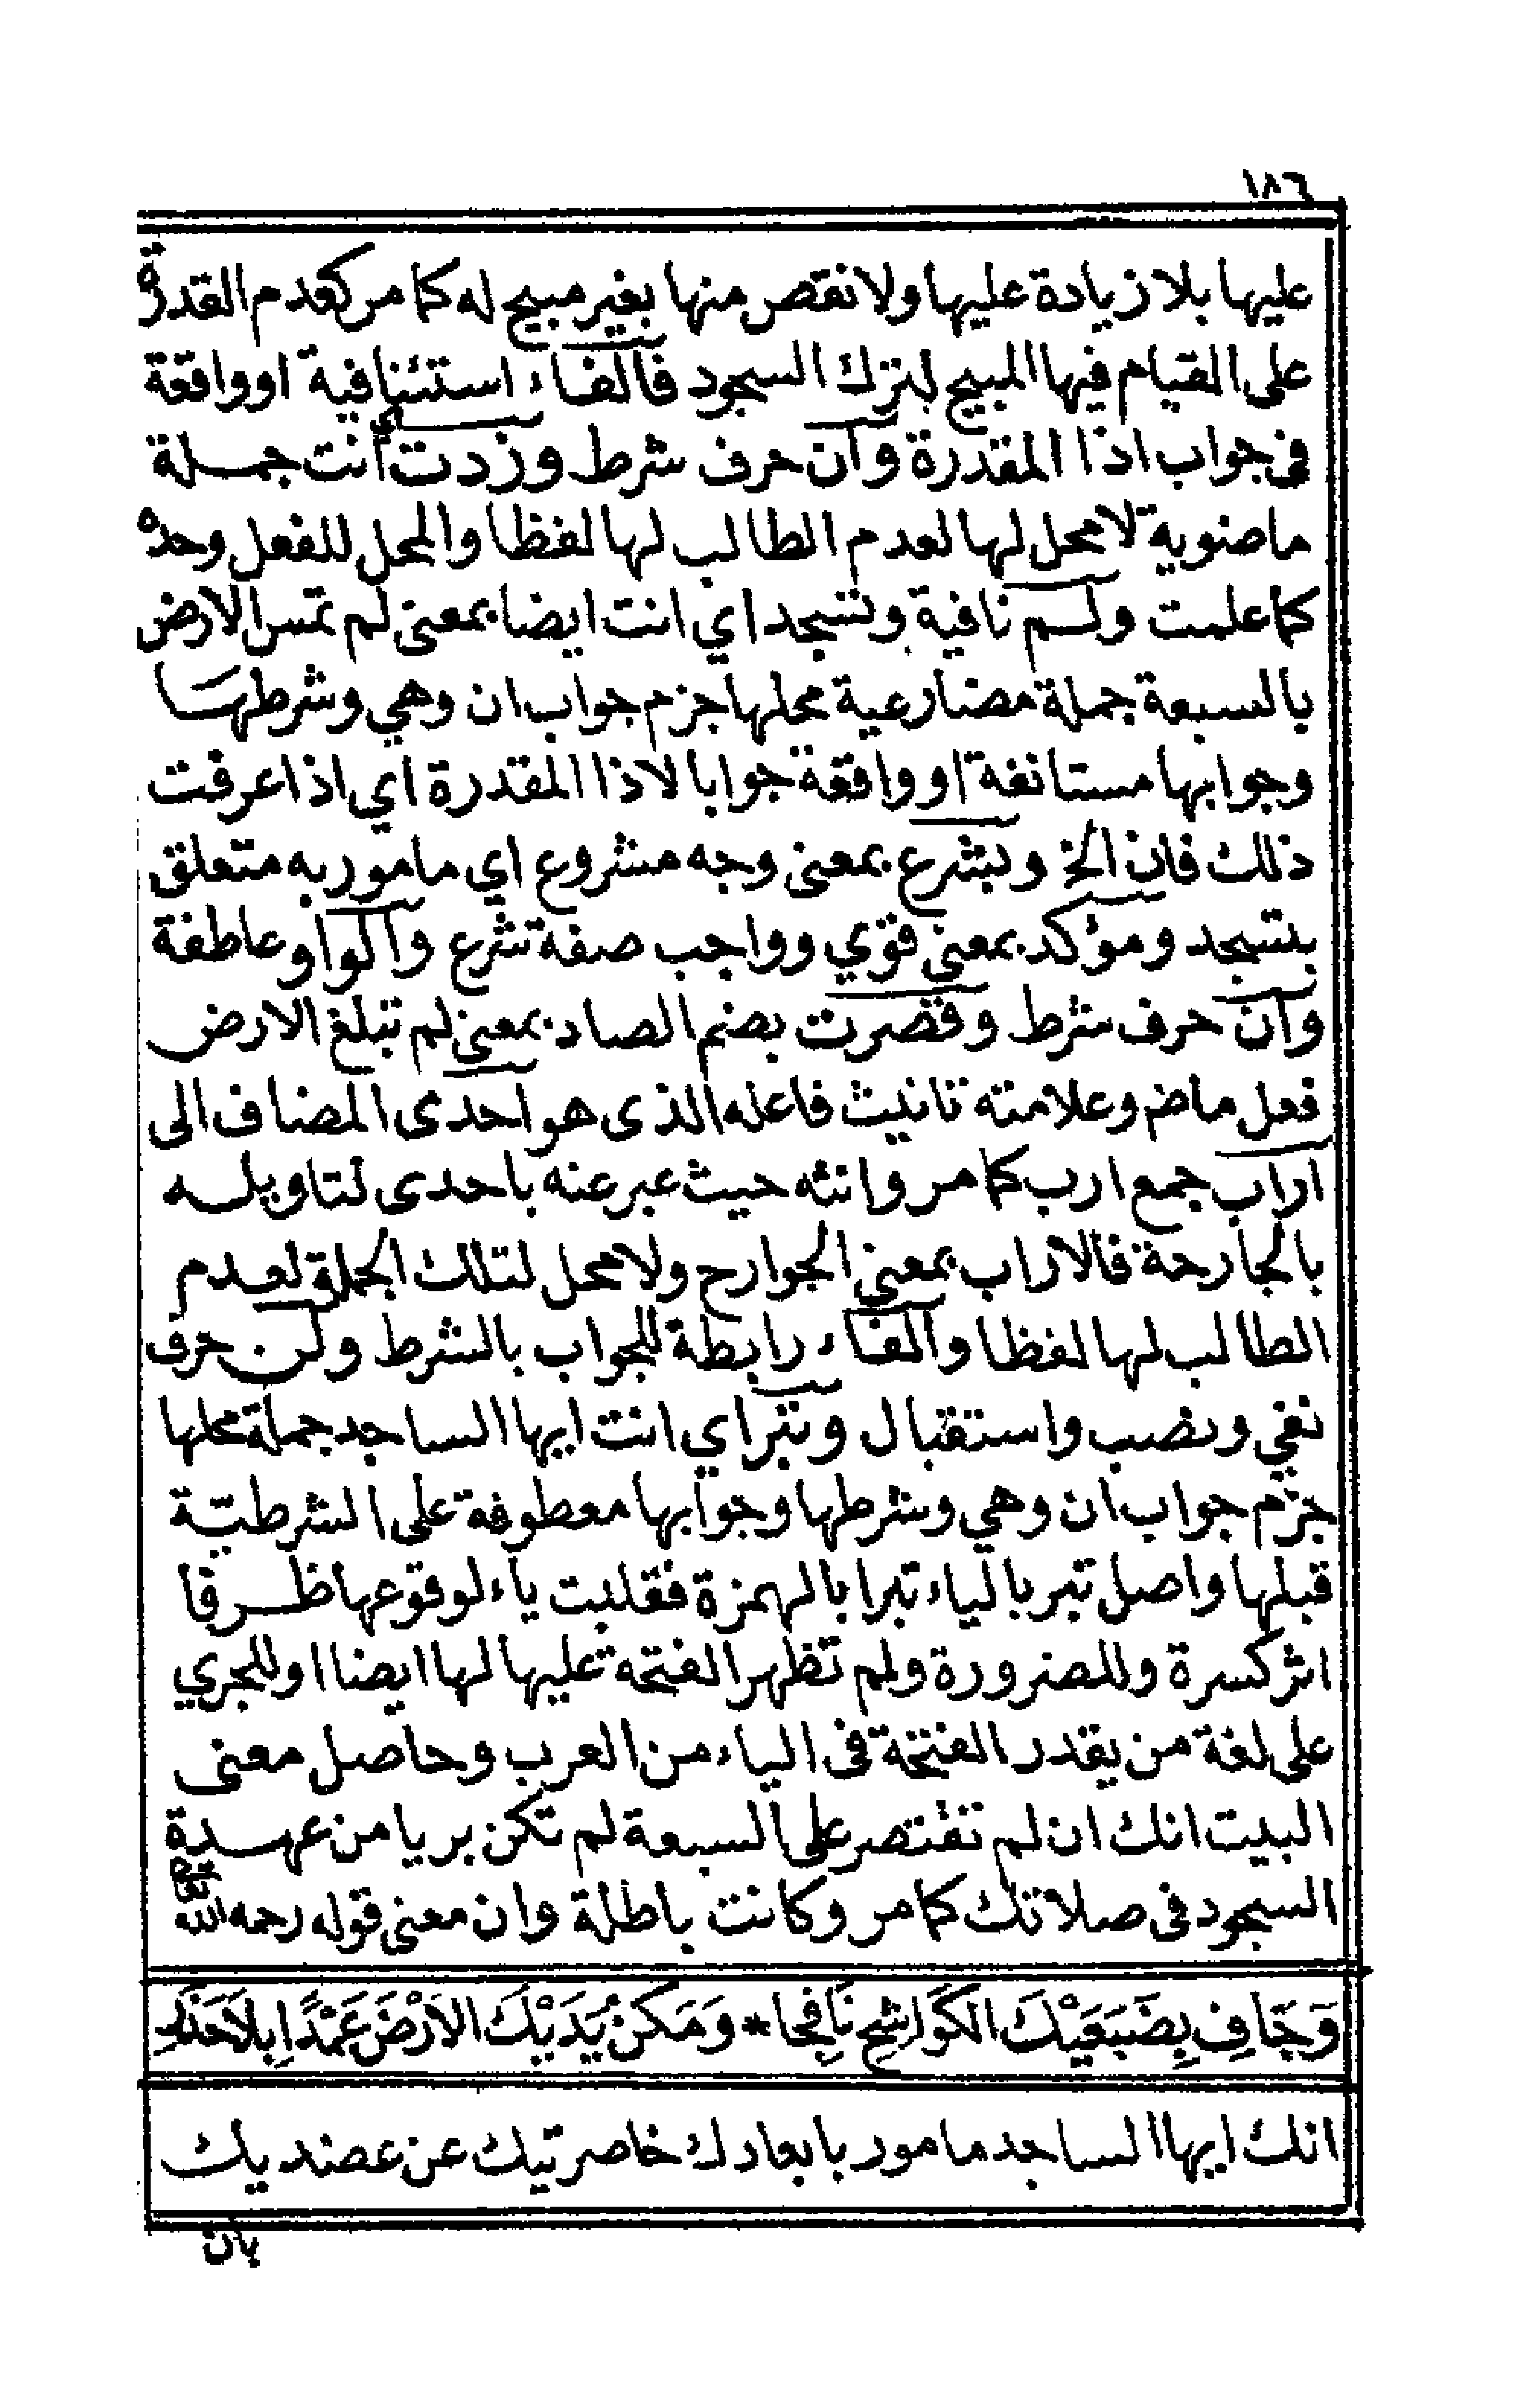 ١٨٦
عليها بلا زيادة عليها ولا نقص منها بغير مبيح له كما مر كعدم القدرة
على القيام فيها المبيح لترك السجود فالفاء استئنافية او واقعة
فى جواب اذا المقدرة وان حرف شرط وزدت أى أنت جملة
ماضوية لا محل لها لعدم الطالب لها لفظا والمحل للفعل وحده
كما علمت ولم نافية وتسجد اي انت ايضا بمعنى لم تمس الارض
بالسبعة جملة مضارعية محلها جزم جواب ان وهي وشرطها
وجوابها مستانفة او واقعة جوابا لاذا المقدرة اي اذا عرفت
ذلك فان الخ وبشرع بمعنى وجه مشروع اي مامور به متعلق
بتسجد ومؤكد بمعنى قوّي وواجب صفة شرع والواو عاطفة
وان حرف شرط وقصرت بضم الصاد بمعنى لم تبلغ الارض
فعل ماض وعلامته تانيث فاعله الذى هو احدى المضاف الى
اراب جمع ارب كما مر وانثه حيث عبر عنه باحدى لتاويله
بالجارحة فالاراب بمعنى الجوارح ولا محل لتلك الجملة لعدم
الطالب لها لفظا والفاء رابطة للجواب بالشرط ولن حرف
نفي ونصب واستقبال وتبر اي انت ايها الساجد جملة محلها
جزم جواب ان وهي وشرطها وجوابها معطوفة على الشرطيّة
قبلها واصل تبر بالياء تبرا بالهمزة فقلبت ياء لوقوعها ظرفا
اثر كسرة وللضرورة ولم تظهر الفتحة عليها لها ايضا او للجري
على لغة من يقدر الفتحة فى الياء من العرب وحاصل معنى
البيت انك ان لم تقتصر على السبعة لم تكن بريا من عهدة
السجود فى صلاتك كما مر وكانت باطلة وان معنى قوله رحمه الله تعالى
وَجَافِ بِضَبَعَيْكَ الكَوَاشِحِ نَافِجًا * وَمَكِّنْ يَدَيْكَ الاَرْضَ عَمْدًا بِلاَ
انك ايها الساجد مامور بابعادك خاصرتيك عن عضديك
بان